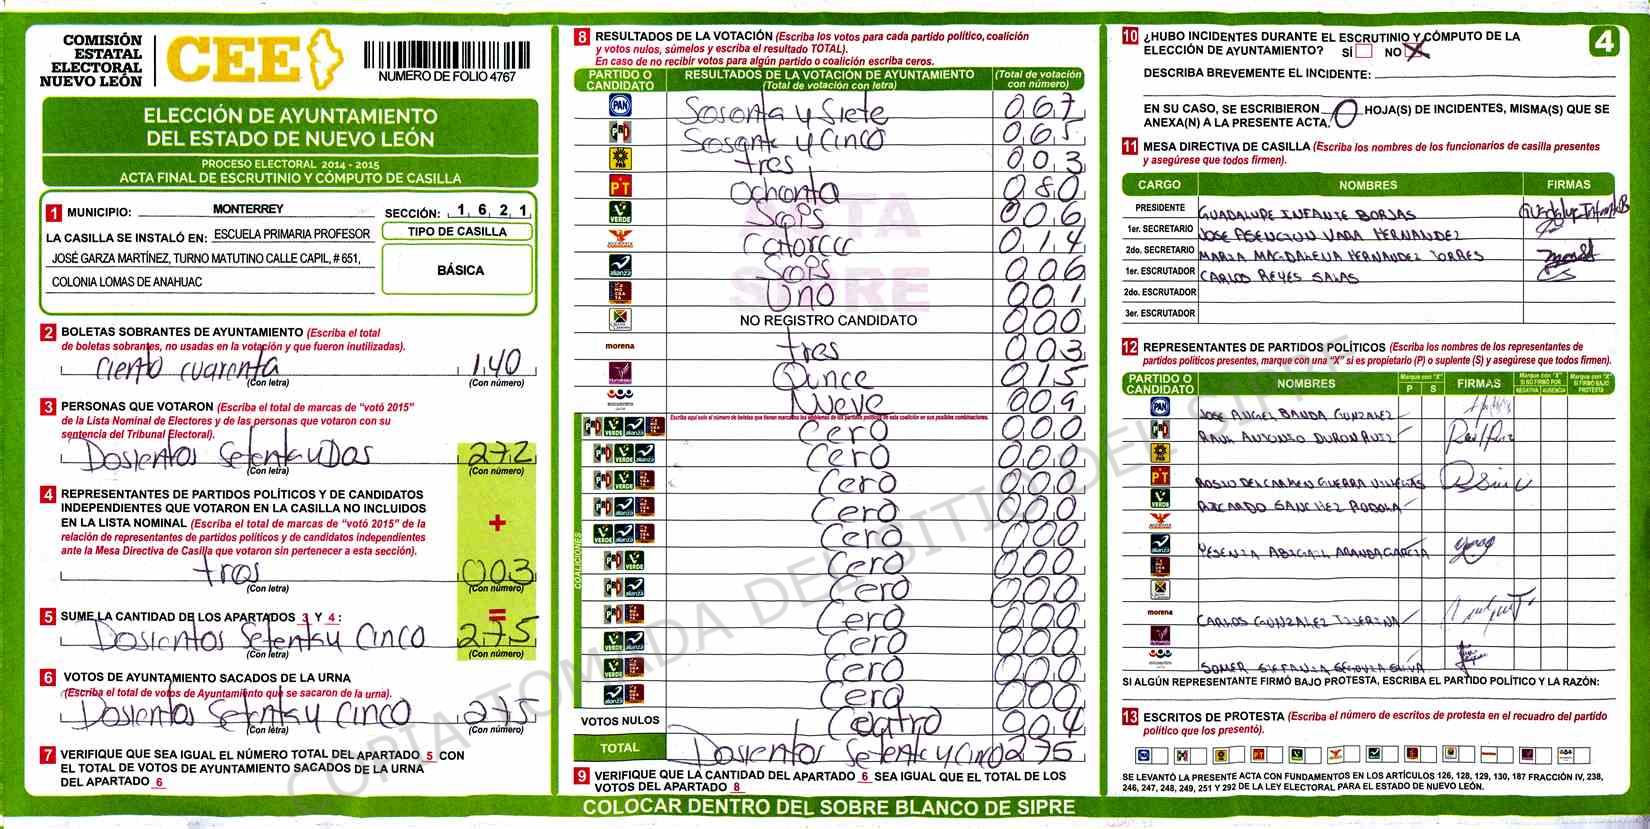 COMISIÓN
ESTATAL
ELECTORAL
NUEVO LEÓN
CEE
NUMERO DE FOLIO 4767
ELECCIÓN DE AYUNTAMIENTO
DEL ESTADO DE NUEVO LEÓN
PROCESO ELECTORAL 2014 - 2015
ACTA FINAL DE ESCRUTINIO Y CÓMPUTO DE CASILLA
1 MUNICIPIO: MONTERREY SECCIÓN: 1 6 2 1
LA CASILLA SE INSTALÓ EN: ESCUELA PRIMARIA PROFESOR
JOSÉ GARZA MARTÍNEZ, TURNO MATUTINO CALLE CAPIL, # 651,
COLONIA LOMAS DE ANAHUAC
TIPO DE CASILLA
BÁSICA
2 BOLETAS SOBRANTES DE AYUNTAMIENTO (Escriba el total
de boletas sobrantes, no usadas en la votación y que fueron inutilizadas).
ciento cuarenta 140
(Con letra) (Con número)
3 PERSONAS QUE VOTARON (Escriba el total de marcas de "votó 2015"
de la Lista Nominal de Electores y de las personas que votaron con su
sentencia del Tribunal Electoral).
Dosientos Setenta y Dos 272
(Con letra) (Con número)
4 REPRESENTANTES DE PARTIDOS POLÍTICOS Y DE CANDIDATOS
INDEPENDIENTES QUE VOTARON EN LA CASILLA NO INCLUIDOS
EN LA LISTA NOMINAL (Escriba el total de marcas de "votó 2015" de la
relación de representantes de partidos políticos y de candidatos independientes
ante la Mesa Directiva de Casilla que votaron sin pertenecer a esta sección).
+
tres 003
(Con letra) (Con número)
=
5 SUME LA CANTIDAD DE LOS APARTADOS 3 Y 4 :
Dosientos Setenta y Cinco 275
(Con letra) (Con número)
6 VOTOS DE AYUNTAMIENTO SACADOS DE LA URNA
(Escriba el total de votos de Ayuntamiento que se sacaron de la urna).
Dosientos Setenta y Cinco 275
(Con letra) (Con número)
7 VERIFIQUE QUE SEA IGUAL EL NÚMERO TOTAL DEL APARTADO 5 CON
EL TOTAL DE VOTOS DE AYUNTAMIENTO SACADOS DE LA URNA
DEL APARTADO 6
8 RESULTADOS DE LA VOTACIÓN (Escriba los votos para cada partido político, coalición
y votos nulos, súmelos y escriba el resultado TOTAL).
En caso de no recibir votos para algún partido o coalición escriba ceros.
PARTIDO O CANDIDATO
RESULTADOS DE LA VOTACIÓN DE AYUNTAMIENTO
(Total de votación con letra)
(Total de votación con número)
PAN Sesenta y Siete 067
PRD Sesenta y Cinco 065
PRD tres 003
PT Ochenta 080
VERDE Seis 006
Catorce 014
alianza Seis 006
Uno 001
NO REGISTRO CANDIDATO 000
morena tres 003
Quince 015
Nueve 009
Escriba aquí solo el número de boletas que tienen marcados los emblemas de los partidos políticos de esta coalición en sus posibles combinaciones.
COALICIONES
Cero 000
Cero 000
Cero 000
Cero 000
Cero 000
Cero 000
Cero 000
Cero 000
Cero 000
Cero 000
Cero 000
VOTOS NULOS Cuatro 004
TOTAL Dosientos Setenta y Cinco 275
9 VERIFIQUE QUE LA CANTIDAD DEL APARTADO 6 SEA IGUAL QUE EL TOTAL DE LOS
VOTOS DEL APARTADO 8
COLOCAR DENTRO DEL SOBRE BLANCO DE SIPRE
10 ¿HUBO INCIDENTES DURANTE EL ESCRUTINIO Y CÓMPUTO DE LA
ELECCIÓN DE AYUNTAMIENTO? SÍ NO X
4
DESCRIBA BREVEMENTE EL INCIDENTE:
EN SU CASO, SE ESCRIBIERON 0 HOJA(S) DE INCIDENTES, MISMA(S) QUE SE
ANEXA(N) A LA PRESENTE ACTA.
11 MESA DIRECTIVA DE CASILLA (Escriba los nombres de los funcionarios de casilla presentes
y asegúrese que todos firmen).
CARGO NOMBRES FIRMAS
PRESIDENTE GUADALUPE INFANTE BORJAS Guadalupe Infante B
1er. SECRETARIO JOSE ASENCION VARA HERNANDEZ
2do. SECRETARIO MARIA MAGDALENA HERNANDEZ TORRES
1er. ESCRUTADOR CARLOS REYES SALAS
2do. ESCRUTADOR
3er. ESCRUTADOR
12 REPRESENTANTES DE PARTIDOS POLÍTICOS (Escriba los nombres de los representantes de
partidos políticos presentes, marque con una "X" si es propietario (P) o suplente (S) y asegúrese que todos firmen).
PARTIDO O CANDIDATO
NOMBRES
Marque con "X"
P S
FIRMAS
Marque con "X" SI NO FIRMÓ POR
NEGATIVA AUSENCIA
Marque con "X" SI FIRMÓ BAJO PROTESTA
PAN JOSE ANGEL BANDA GONZALEZ
RAUL ANTONIO DURON RUIZ
PT ROSIO DEL CARMEN GUERRA VILLEGAS
VERDE RICARDO SANCHEZ
alianza YESENIA ABIGAIL ARANDA GARCIA
morena CARLOS GONZALEZ TIJERINA
SOMER STEFANIA SEGOVIA SILVA
SI ALGÚN REPRESENTANTE FIRMÓ BAJO PROTESTA, ESCRIBA EL PARTIDO POLÍTICO Y LA RAZÓN:
13 ESCRITOS DE PROTESTA (Escriba el número de escritos de protesta en el recuadro del partido
político que los presentó).
SE LEVANTÓ LA PRESENTE ACTA CON FUNDAMENTOS EN LOS ARTÍCULOS 126, 128, 129, 130, 187 FRACCIÓN IV, 238,
246, 247, 248, 249, 251 Y 292 DE LA LEY ELECTORAL PARA EL ESTADO DE NUEVO LEÓN.
ACTA
SIPRE
COPIA TOMADA DEL SITIO DEL SIPRE